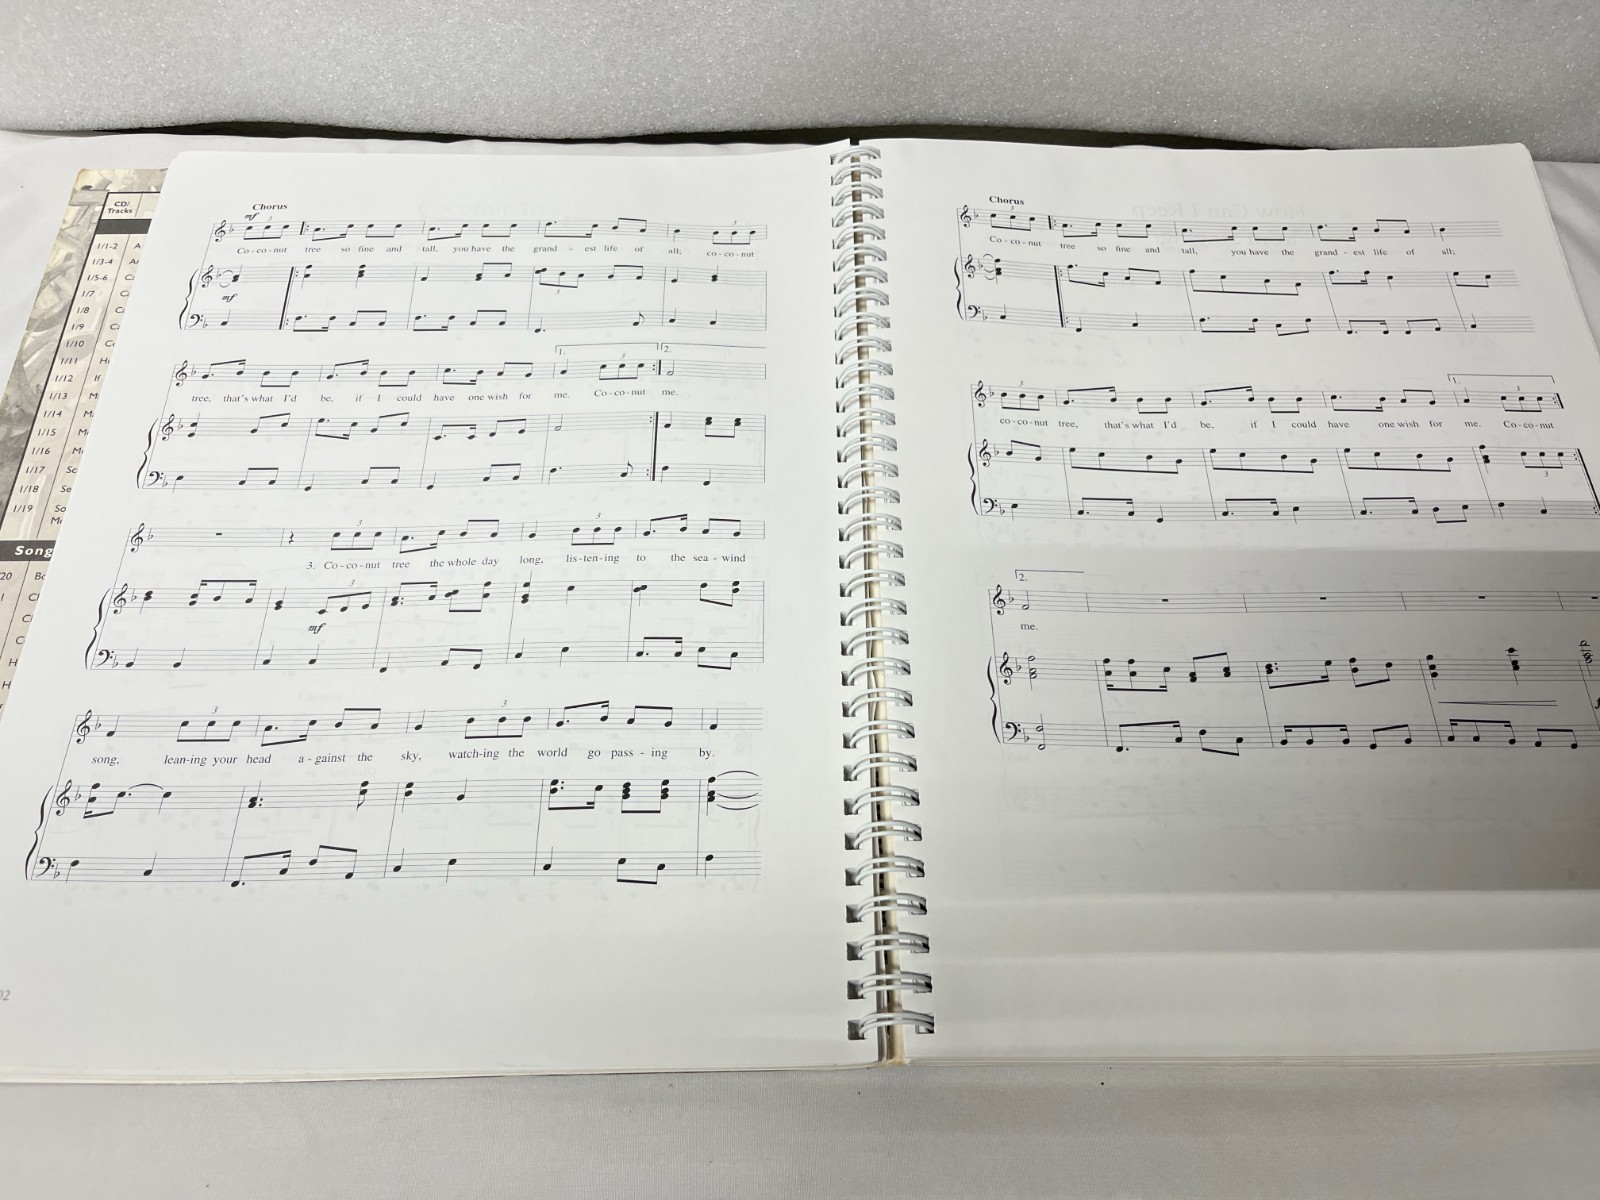 CD/
Tracks
1/1-2 A
1/3-4
1/5-6 Ca
1/7 Ca
1/8
1/9
1/10
1/11 Hi
1/12 If
1/13
1/14
1/15
1/16
1/17 So
1/18 Se
1/19 So
Song
20
02
Chorus
mf
3
3
Co - co - nut tree so fine and tall, you have the grand - est life of all; co - co - nut
mf
3
1.
3
2.
tree, that's what I'd be, if I could have one wish for me. Co - co - nut me.
3
3
3. Co - co - nut tree the whole day long, lis - ten - ing to the sea - wind
3
mf
3
3
song, lean - ing your head a - gainst the sky, watch - ing the world go pass - ing by.
Chorus
3
Co - co - nut tree so fine and tall, you have the grand - est life of all;
3
1.
3
co - co - nut tree, that's what I'd be, if I could have one wish for me. Co - co - nut
3
2.
me.